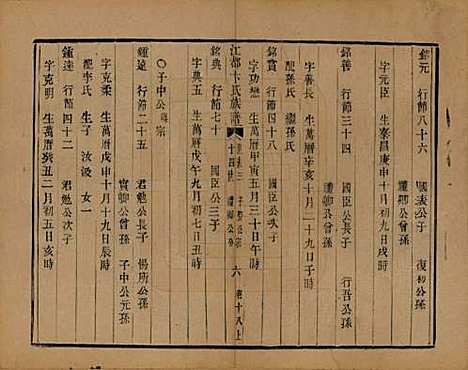 銘元 行節八十六 國表公子 復初公孫
禮卿公曾孫
字元臣 生泰昌庚申十月初九日戌時
銘善 行節三十四 國臣公長子 行吾公孫
禮卿公曾孫
字善長 生萬曆辛亥十月二十九日子時
配孫氏 繼孫氏
銘賞 行節四十八 國臣公次子
字功懋 生萬曆甲寅五月三十日午時
江都卞氏族譜 十四世 禮卿公分 六 卷十八上
銘典 行節七十 國臣公三子
字典五 生萬曆戊午九月初七日丑時
○子中公宗
鍾遠 行節二十五 君勉公長子 錫所公孫
實卿公曾孫 子中公元孫
字克柔 生萬曆十月十九日辰時
配李氏 生子汝 女一
鍾達 行節四十二 君勉公次子
字克明 生萬曆癸丑二月初五日亥時